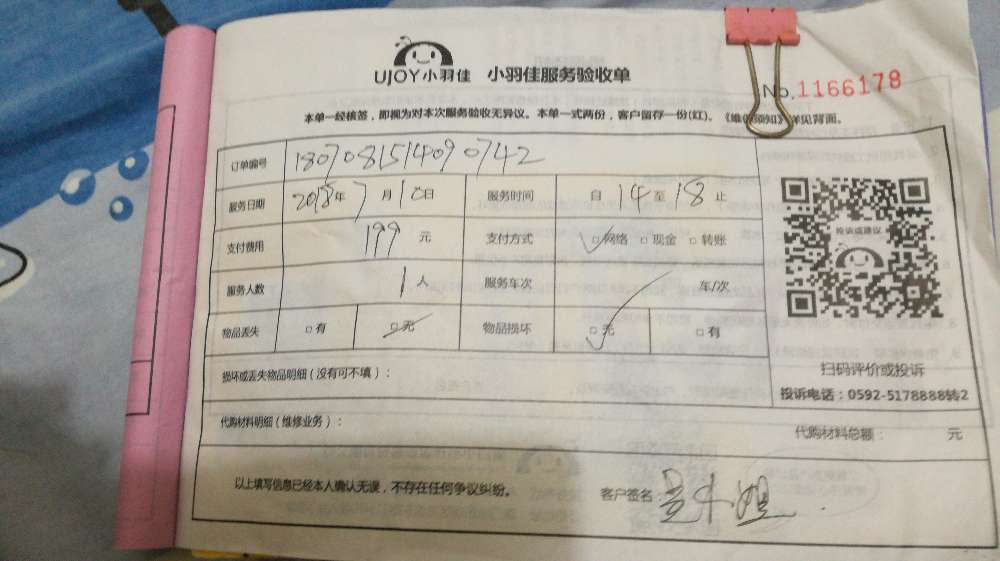 UJOY小羽佳 小羽佳服务验收单
No.1166178
本单一经核签，即视为对本次服务验收无异议。本单一式两份，客户留存一份(红)。《维修须知》详见背面。
订单编号 1807081514090742
服务日期 2018年7月10日 服务时间 自14至18止
支付费用 199元 支付方式 ☑网络 □现金 □转账
服务人数 1人 服务车次 车/次
物品丢失 □有 ☑无 物品损坏 ☑无 □有
投诉或建议
扫码评价或投诉
投诉电话：0592-5178888转2
损坏或丢失物品明细（没有可不填）：
代购材料明细（维修业务）： 代购材料总额： 元
以上填写信息已经本人确认无误，不存在任何争议纠纷。 客户签名：